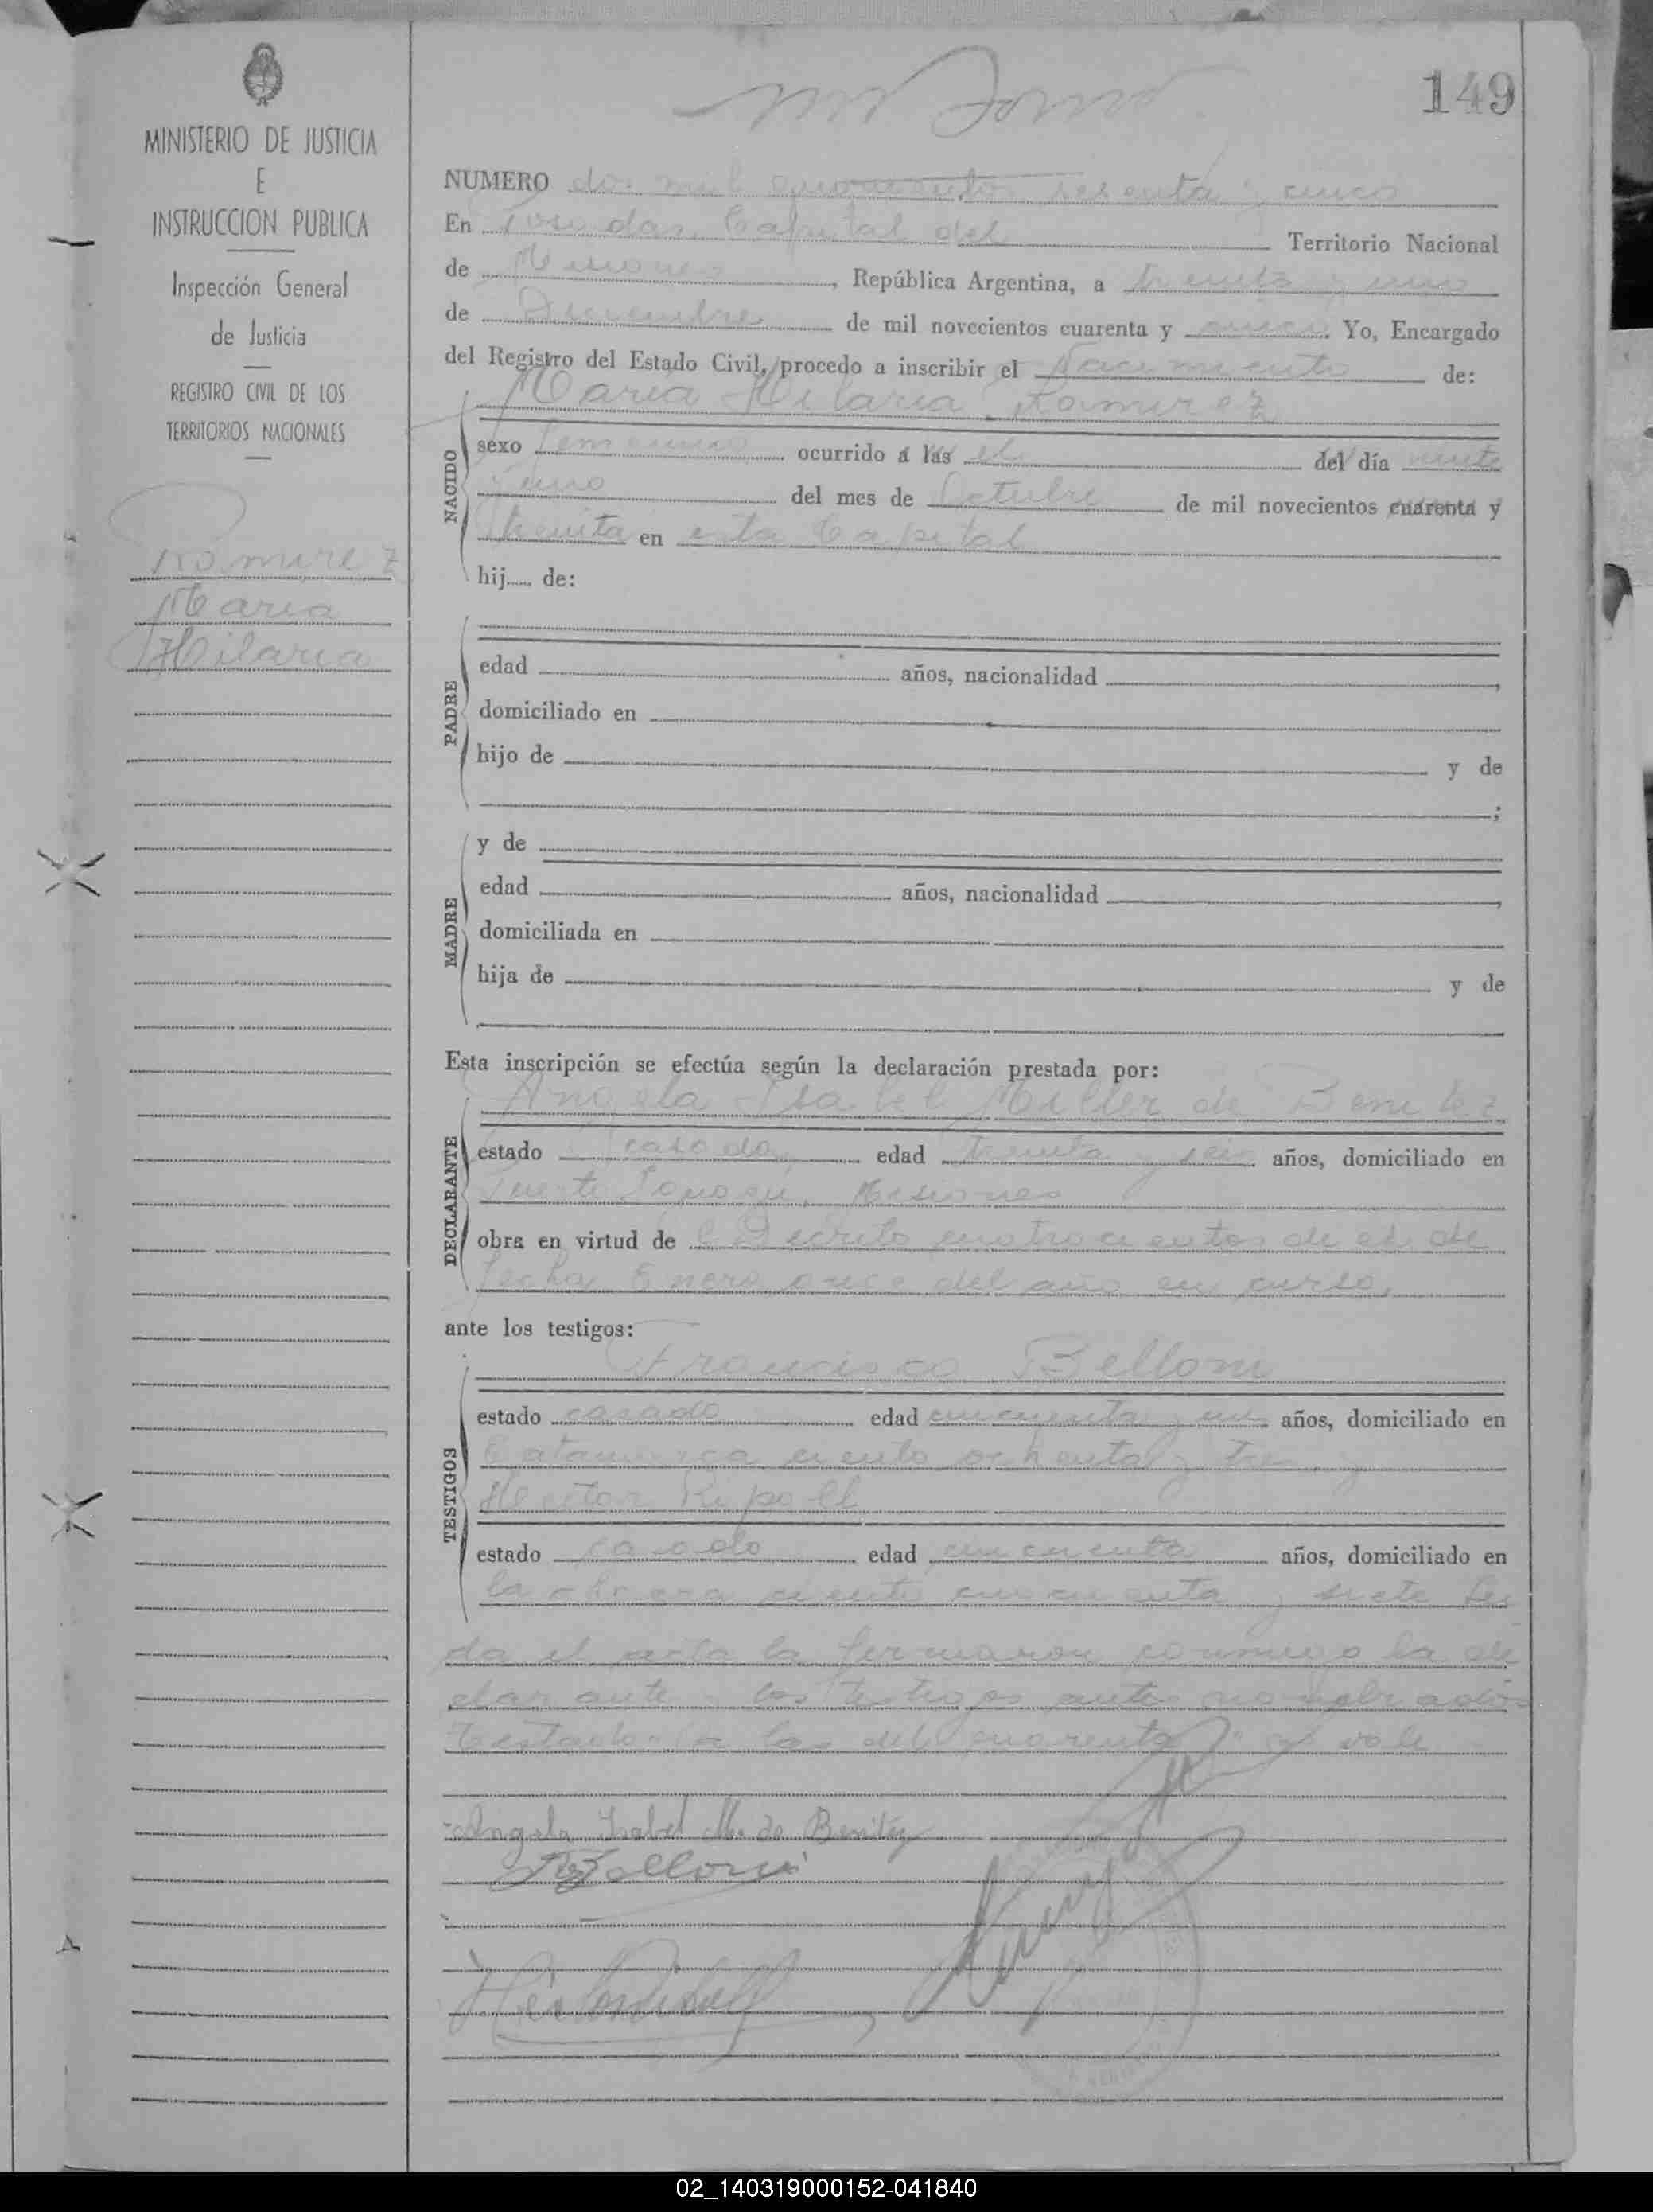 149
MINISTERIO DE JUSTICIA
E
INSTRUCCION PUBLICA
Inspección General
de Justicia
REGISTRO CIVIL DE LOS
TERRITORIOS NACIONALES
Ramirez
Maria
Hilaria
NUMERO dos mil sesenta y cinco
En Posadas, Capital del Territorio Nacional
de Misiones, República Argentina, a treinta y uno
de Diciembre de mil novecientos cuarenta y Yo, Encargado
del Registro del Estado Civil, procedo a inscribir el Nacimiento de:
Maria Hilaria Ramirez
NACIDO
sexo femenino ocurrido a las el del día veinte
y uno del mes de Octubre de mil novecientos cuarenta y
treinta en esta Capital
hij..... de:
PADRE
edad años, nacionalidad ,
domiciliado en
hijo de y de
;
MADRE
y de
edad años, nacionalidad ,
domiciliada en
hija de y de
Esta inscripción se efectúa según la declaración prestada por:
DECLARANTE
Angela Isabel Miller de Benitez
estado casada edad treinta y seis años, domiciliado en
Puerto Misiones
obra en virtud de Decreto cuatrocientos de
fecha Enero once del año en curso,
ante los testigos:
TESTIGOS
Francisco Belloni
estado casado edad cincuenta y un años, domiciliado en
Catamarca ciento ochenta y tres y
Hector Ripoll
estado casado edad cincuenta años, domiciliado en
ciento cincuenta y siete Lei
da el acta la firmaron conmigo la de
clarante y los testigos antes nombrados
Testado: a las del cuarenta no vale
Angela Isabel M. de Benitez
Belloni
02_140319000152-041840